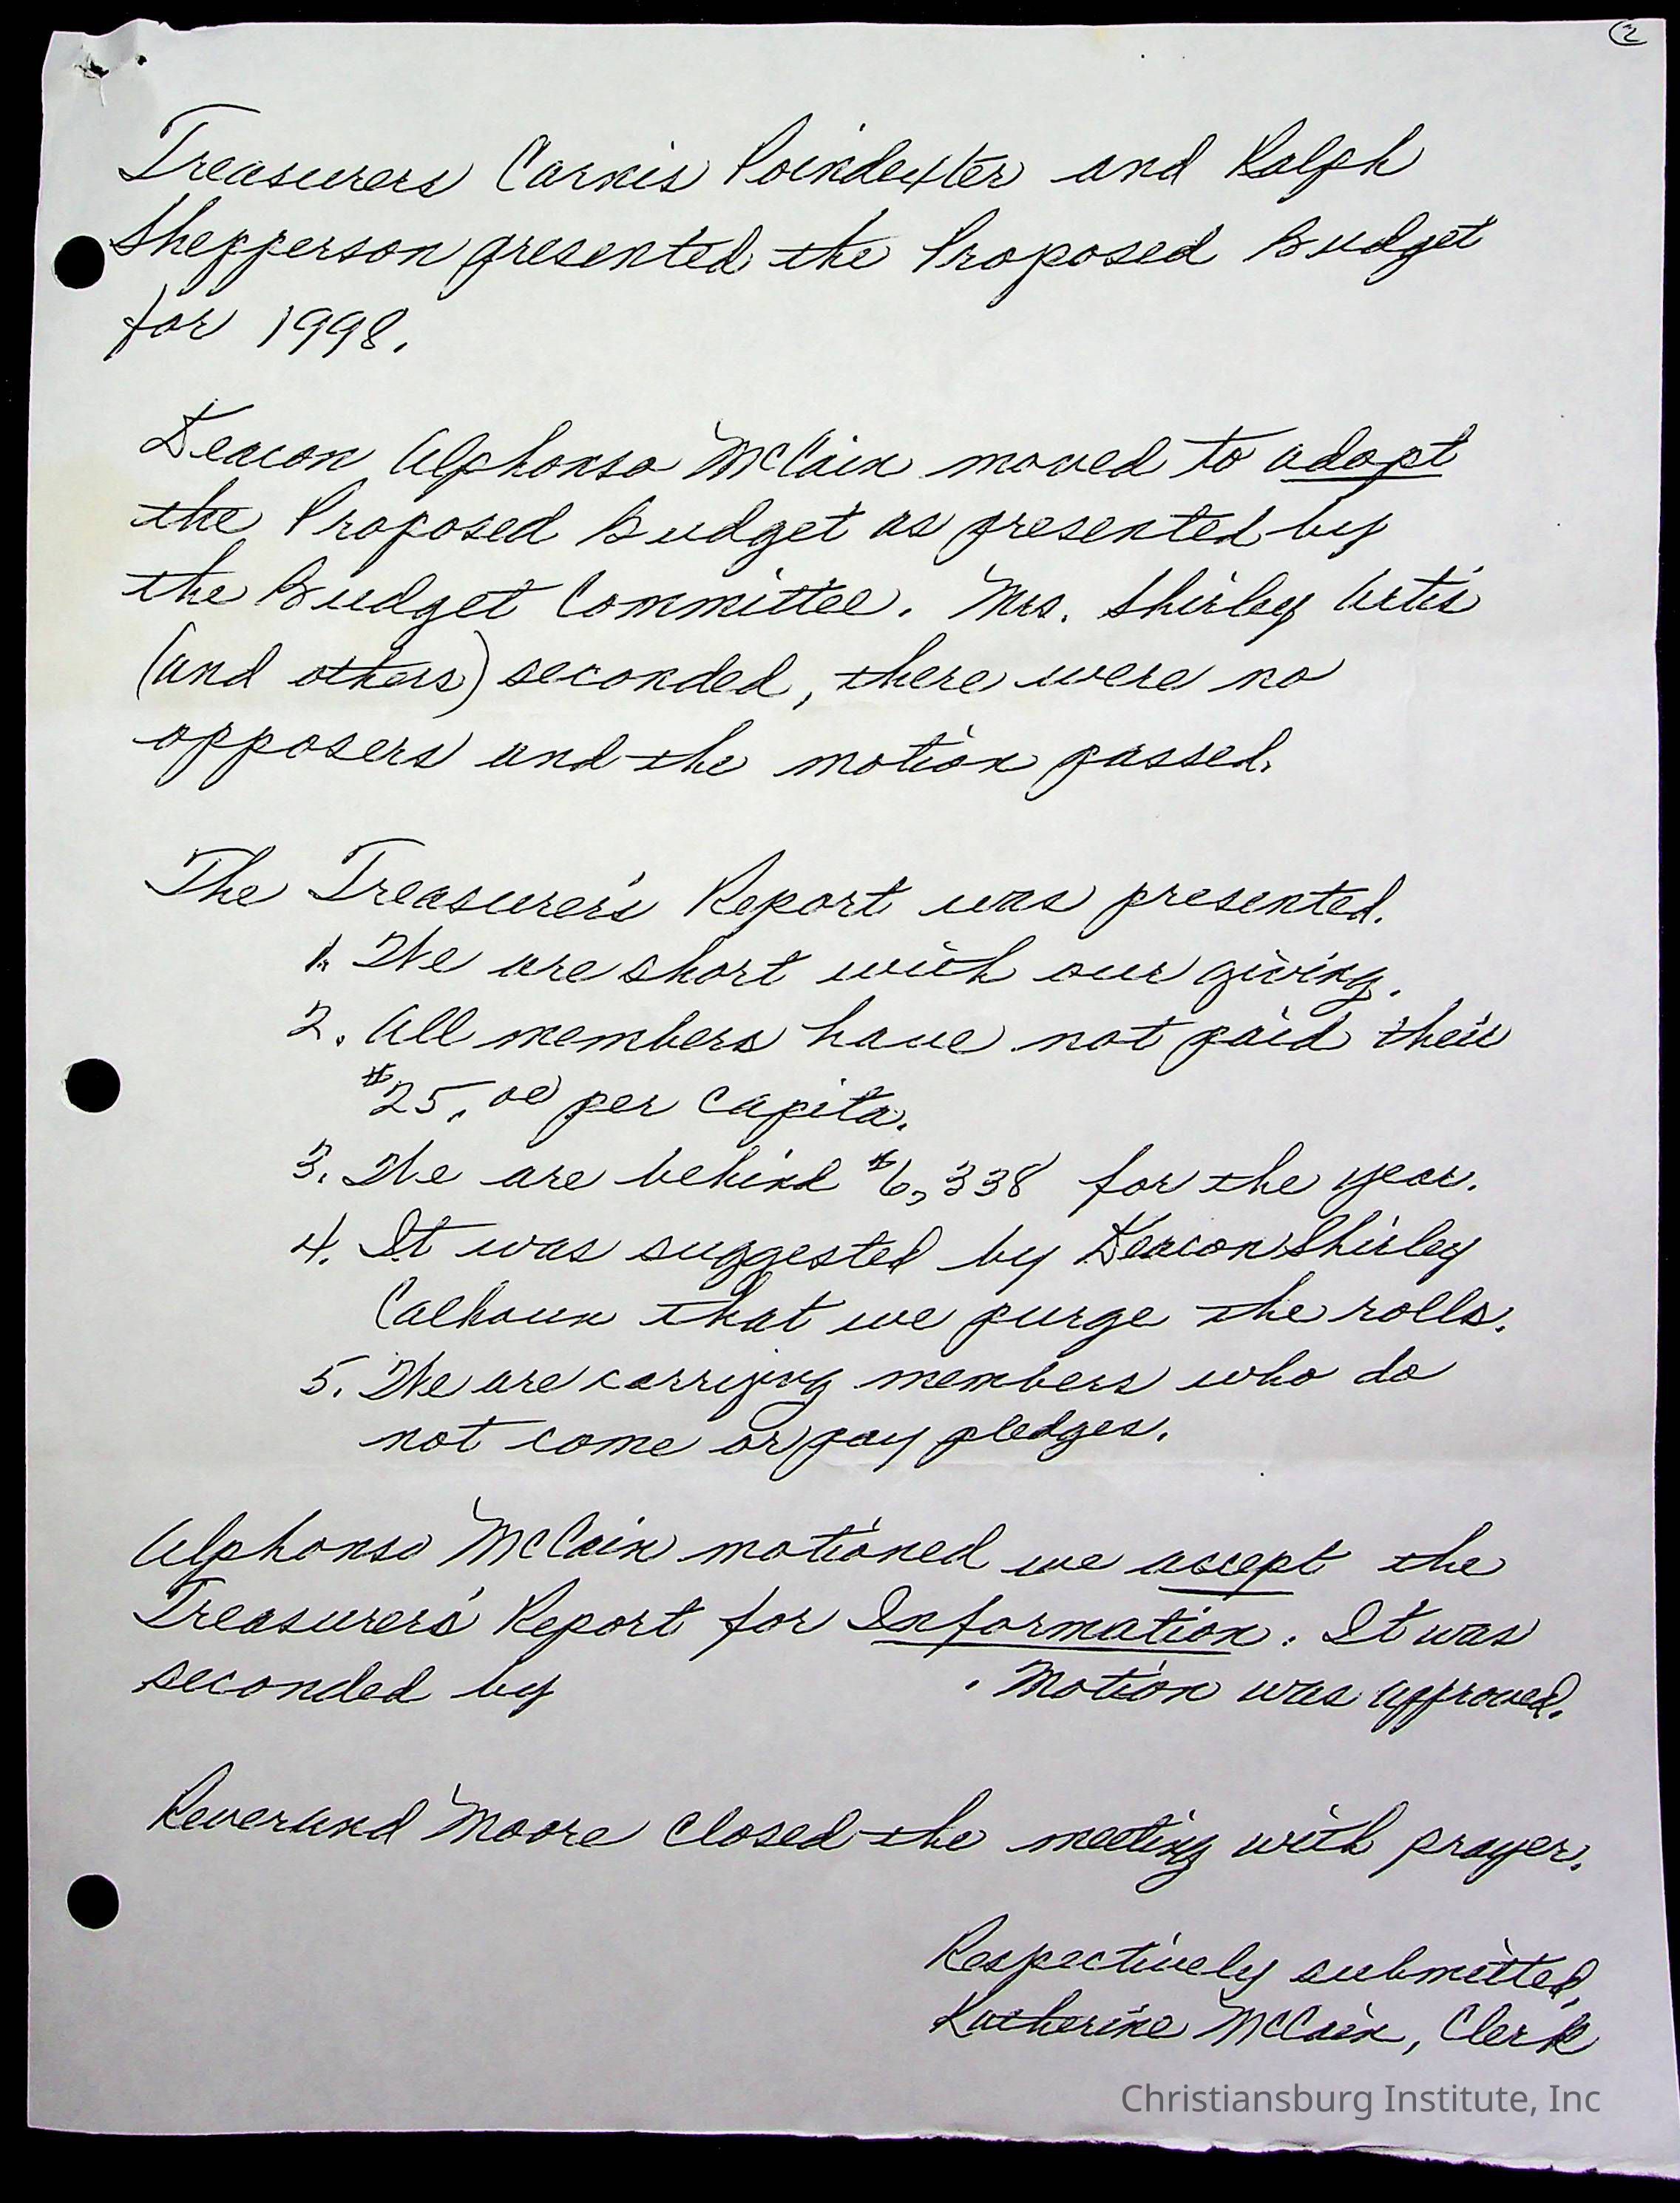 2
Treasurers Carnis Poindexter and Ralph
Shepperson presented the Proposed Budget
for 1998.
Deacon Alphonso McCain moved to adopt
the Proposed Budget as presented by
the Budget Committee. Mrs. Shirley Artis
(and others) seconded, there were no
opposers and the motion passed.
The Treasurer's Report was presented.
1. We are short with our giving.
2. All members have not paid their
$25.00 per capita.
3. We are behind $6,338 for the year.
4. It was suggested by Deacon Shirley
Calhoun that we purge the rolls.
5. We are carrying members who do
not come or pay pledges.
Alphonso McCain motioned we accept the
Treasurers' Report for Information. It was
seconded by . Motion was approved.
Reverand Moore closed the meeting with prayer.
Respectively submitted,
Katherine McCain, Clerk
Christiansburg Institute, Inc